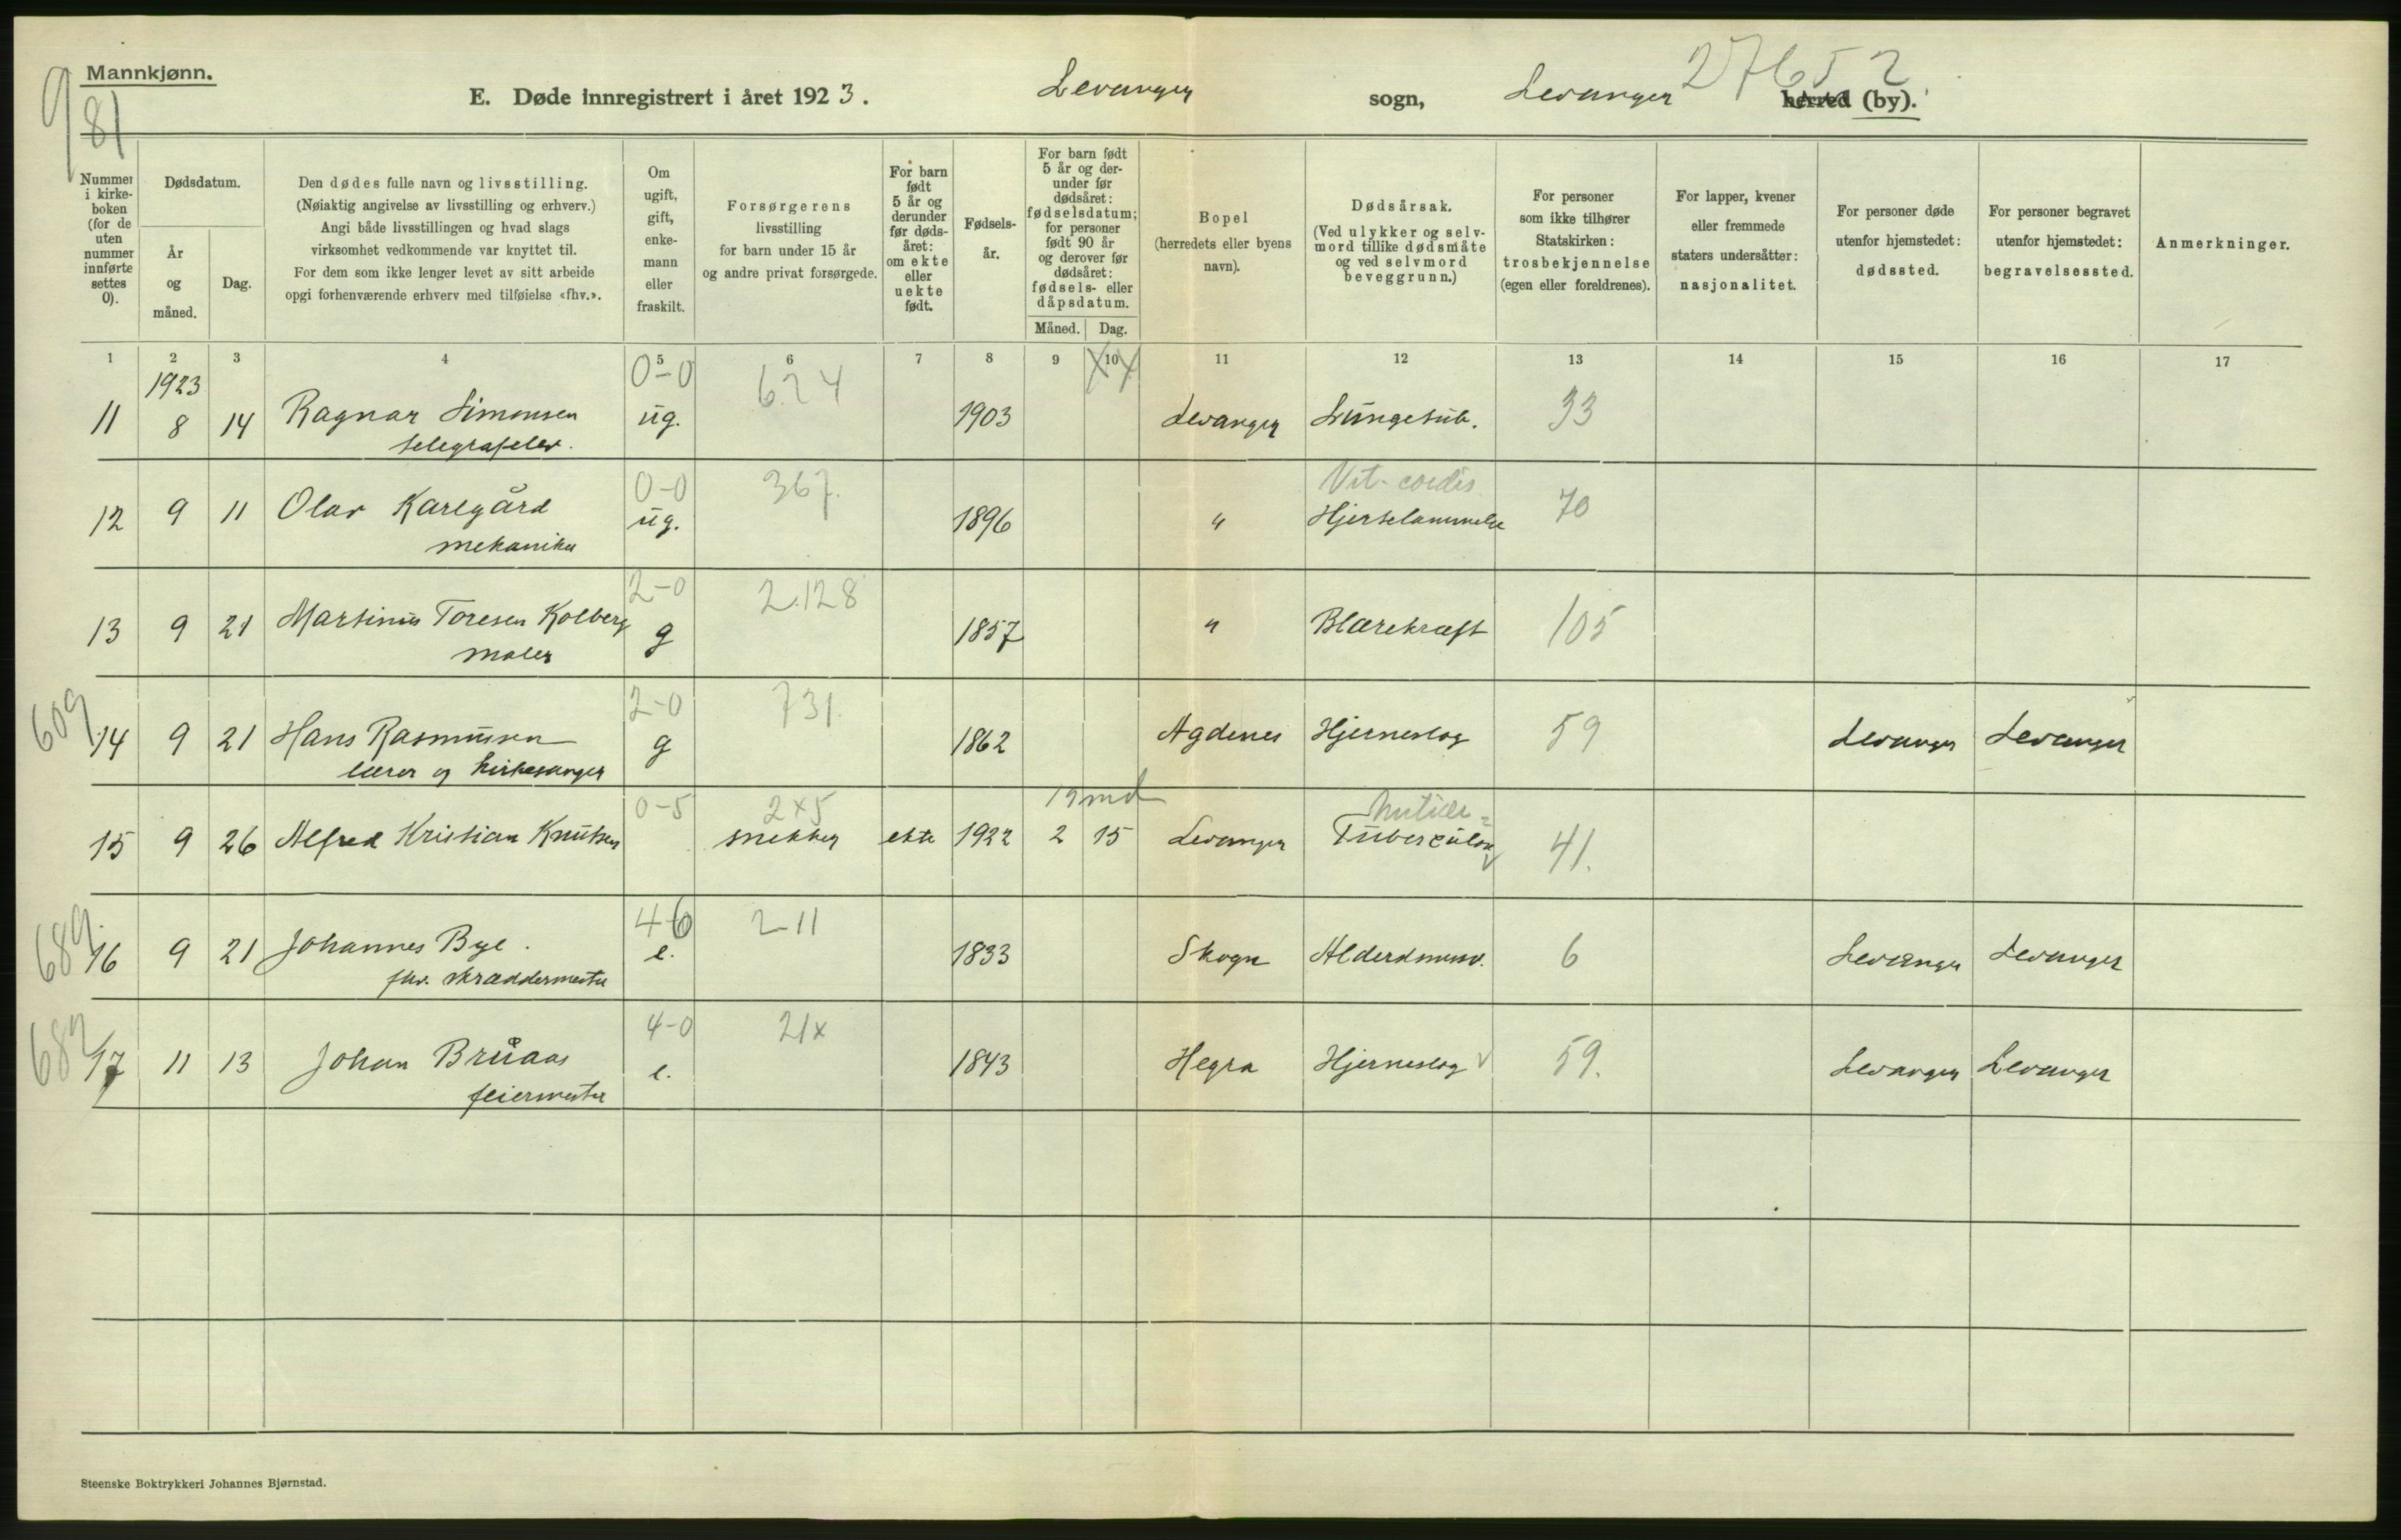 Mannkjønn.
981
E. Døde innregistrert i året 1923.
Levanger sogn, Levanger herred (by).
27652
Nummer i kirke-boken (for de uten nummer innførte settes 0).
Dødsdatum.
År og måned.
Dag.
Den dødes fulle navn og livsstilling.
(Nøiaktig angivelse av livsstilling og erhverv.)
Angi både livsstillingen og hvad slags
virksomhet vedkommende var knyttet til.
For dem som ikke lenger levet av sitt arbeide
opgi forhenværende erhverv med tilføielse «fhv.».
Om ugift, gift, enke-mann eller fraskilt.
Forsørgerens
livsstilling
for barn under 15 år
og andre privat forsørgede.
For barn født 5 år og derunder før døds-året: om ekte eller uekte født.
Fødsels-år.
For barn født 5 år og der-under før dødsåret: fødselsdatum; for personer født 90 år og derover før dødsåret: fødsels- eller dåpsdatum.
Måned. Dag.
Bopel
(herredets eller byens navn).
Dødsårsak.
(Ved ulykker og selv-mord tillike dødsmåte og ved selvmord beveggrunn.)
For personer som ikke tilhører Statskirken: trosbekjennelse (egen eller foreldrenes).
For lapper, kvener eller fremmede staters undersåtter: nasjonalitet.
For personer døde utenfor hjemstedet: dødssted.
For personer begravet utenfor hjemstedet: begravelsessted.
Anmerkninger.
1 2 3 4 5 6 7 8 9 10 11 12 13 14 15 16 17
1923 0-0 624 XX
11 8 14 Ragnar Simonsen ug. 1903 Levanger Lungetub. 33
telegrafelev.
0-0 367. Vit. cordis
12 9 11 Olav Karlgård ug. 1896 " Hjertelammelse 70
mekaniker
2-0 2.128
13 9 21 Martinus Toresen Kolberg g 1857 " Blærekræft 105
maler
609 2-0 731.
14 9 21 Hans Rasmussen g 1862 Agdenes Hjerneslag 59 Levanger Levanger
lærer og kirkesanger
0-5 2x5 19 md
15 9 26 Alfred Kristian Knutsen snekker ekte 1922 2 15 Levanger Tuberculose 41.
689. 4-0 2-11
16 9 21 Johannes Bye. e. 1833 Skogn Alderdomsv. 6 Levanger Levanger
fhv. skræddermester
689 4-0 21x
17 11 13 Johan Bruaas e. 1843 Hegra Hjerneslag 59. Levanger Levanger
feiermester
Steenske Boktrykkeri Johannes Bjørnstad.